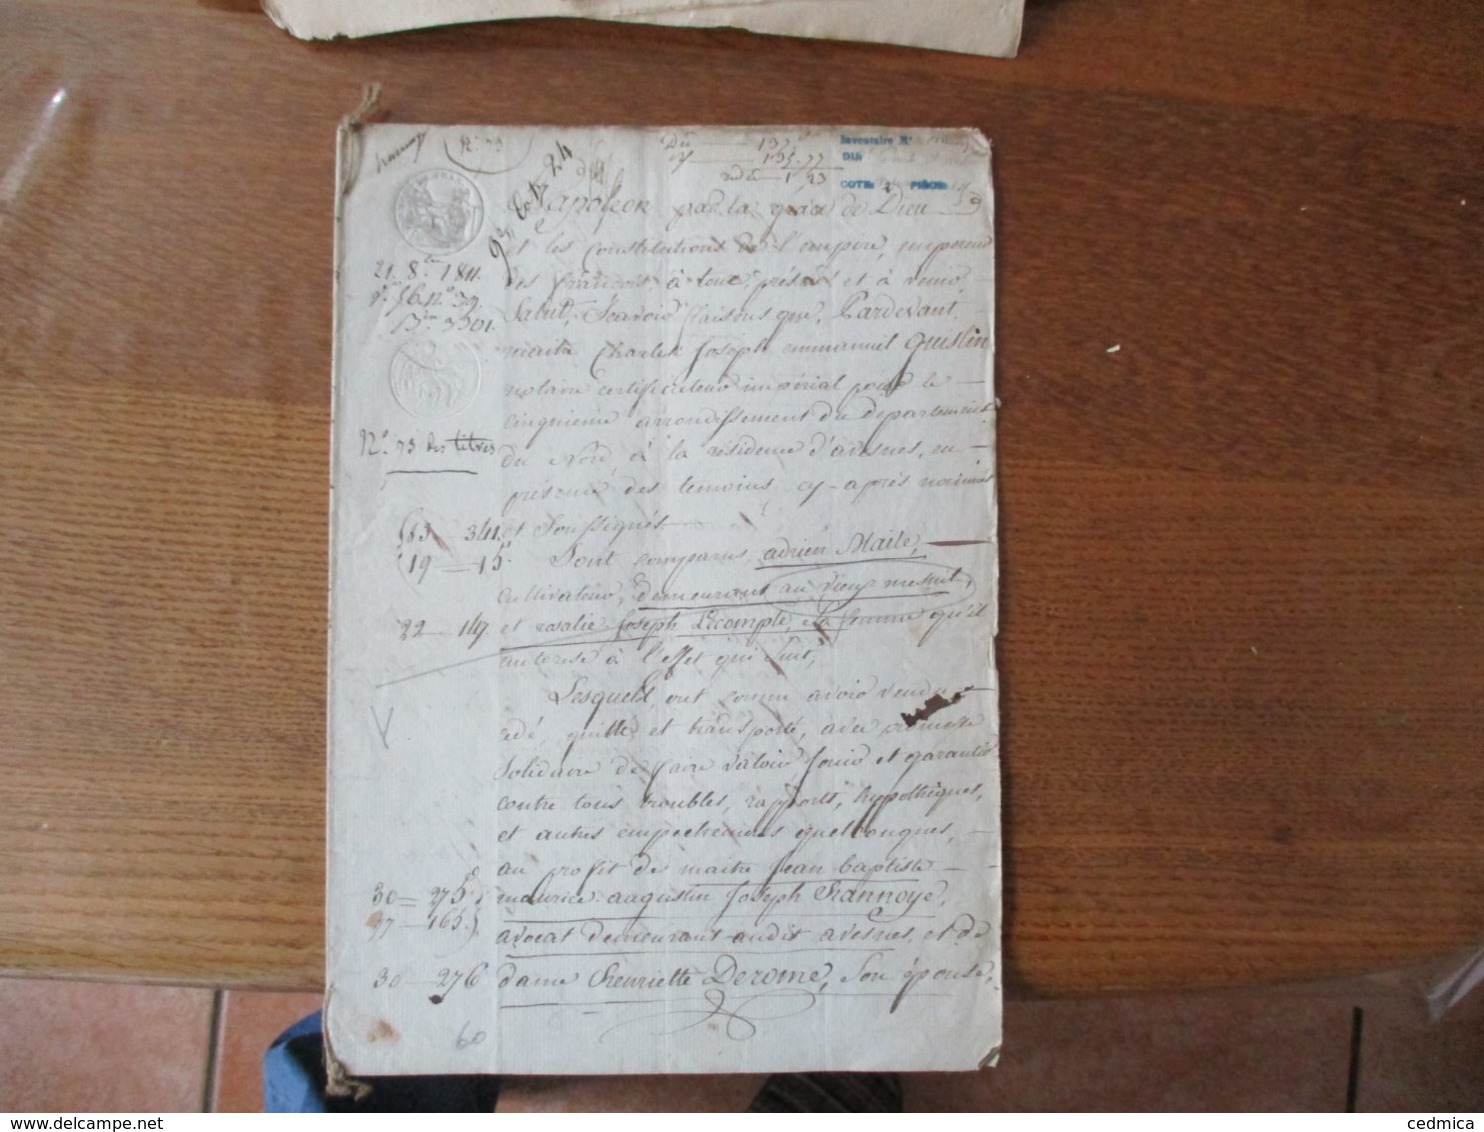 hannoy
N° 73
Du 137
135.77
1 23
Inventaire N°
DU
COTE PIÈCE
Napoleon par la grace de Dieu
et les constitutions de l'empire, empereur
des francois à tous présens et à venir
21. 8.bre 1811.
Salut, Scavoir faisons que, Pardevant
maitre Charles Joseph emmanuel Guislin
notaire certificateur impérial pour le
cinquieme arrondissement du departement
N° 73 des titres
du Nord, à la résidence d'avesnes, en
présence des temoins cy-après nommés
et Soussignés
83 341
Sont comparus adrien Maile,
19 15
cultivateur, demeurant au vieux mesnil,
et rosalie Joseph Lecompte, sa femme qu'il
22 147
autorise à l'effet qui suit,
Lesquels ont comme avoir vendu
V
cédé, quitté et transporté, avec promesse
solidaire de faire valoir, fournir et garantir
contre tous troubles, rapports, hypothèques,
et autres empechemens quelconques,
au profit de maitre jean baptiste
30 = 275
maurice augustin Joseph hannoye,
37 — 165
avocat demeurant audit avesnes, et de
30 — 276
dame henriette Derome, son épouse,
60
© delcampe.net
cedmica